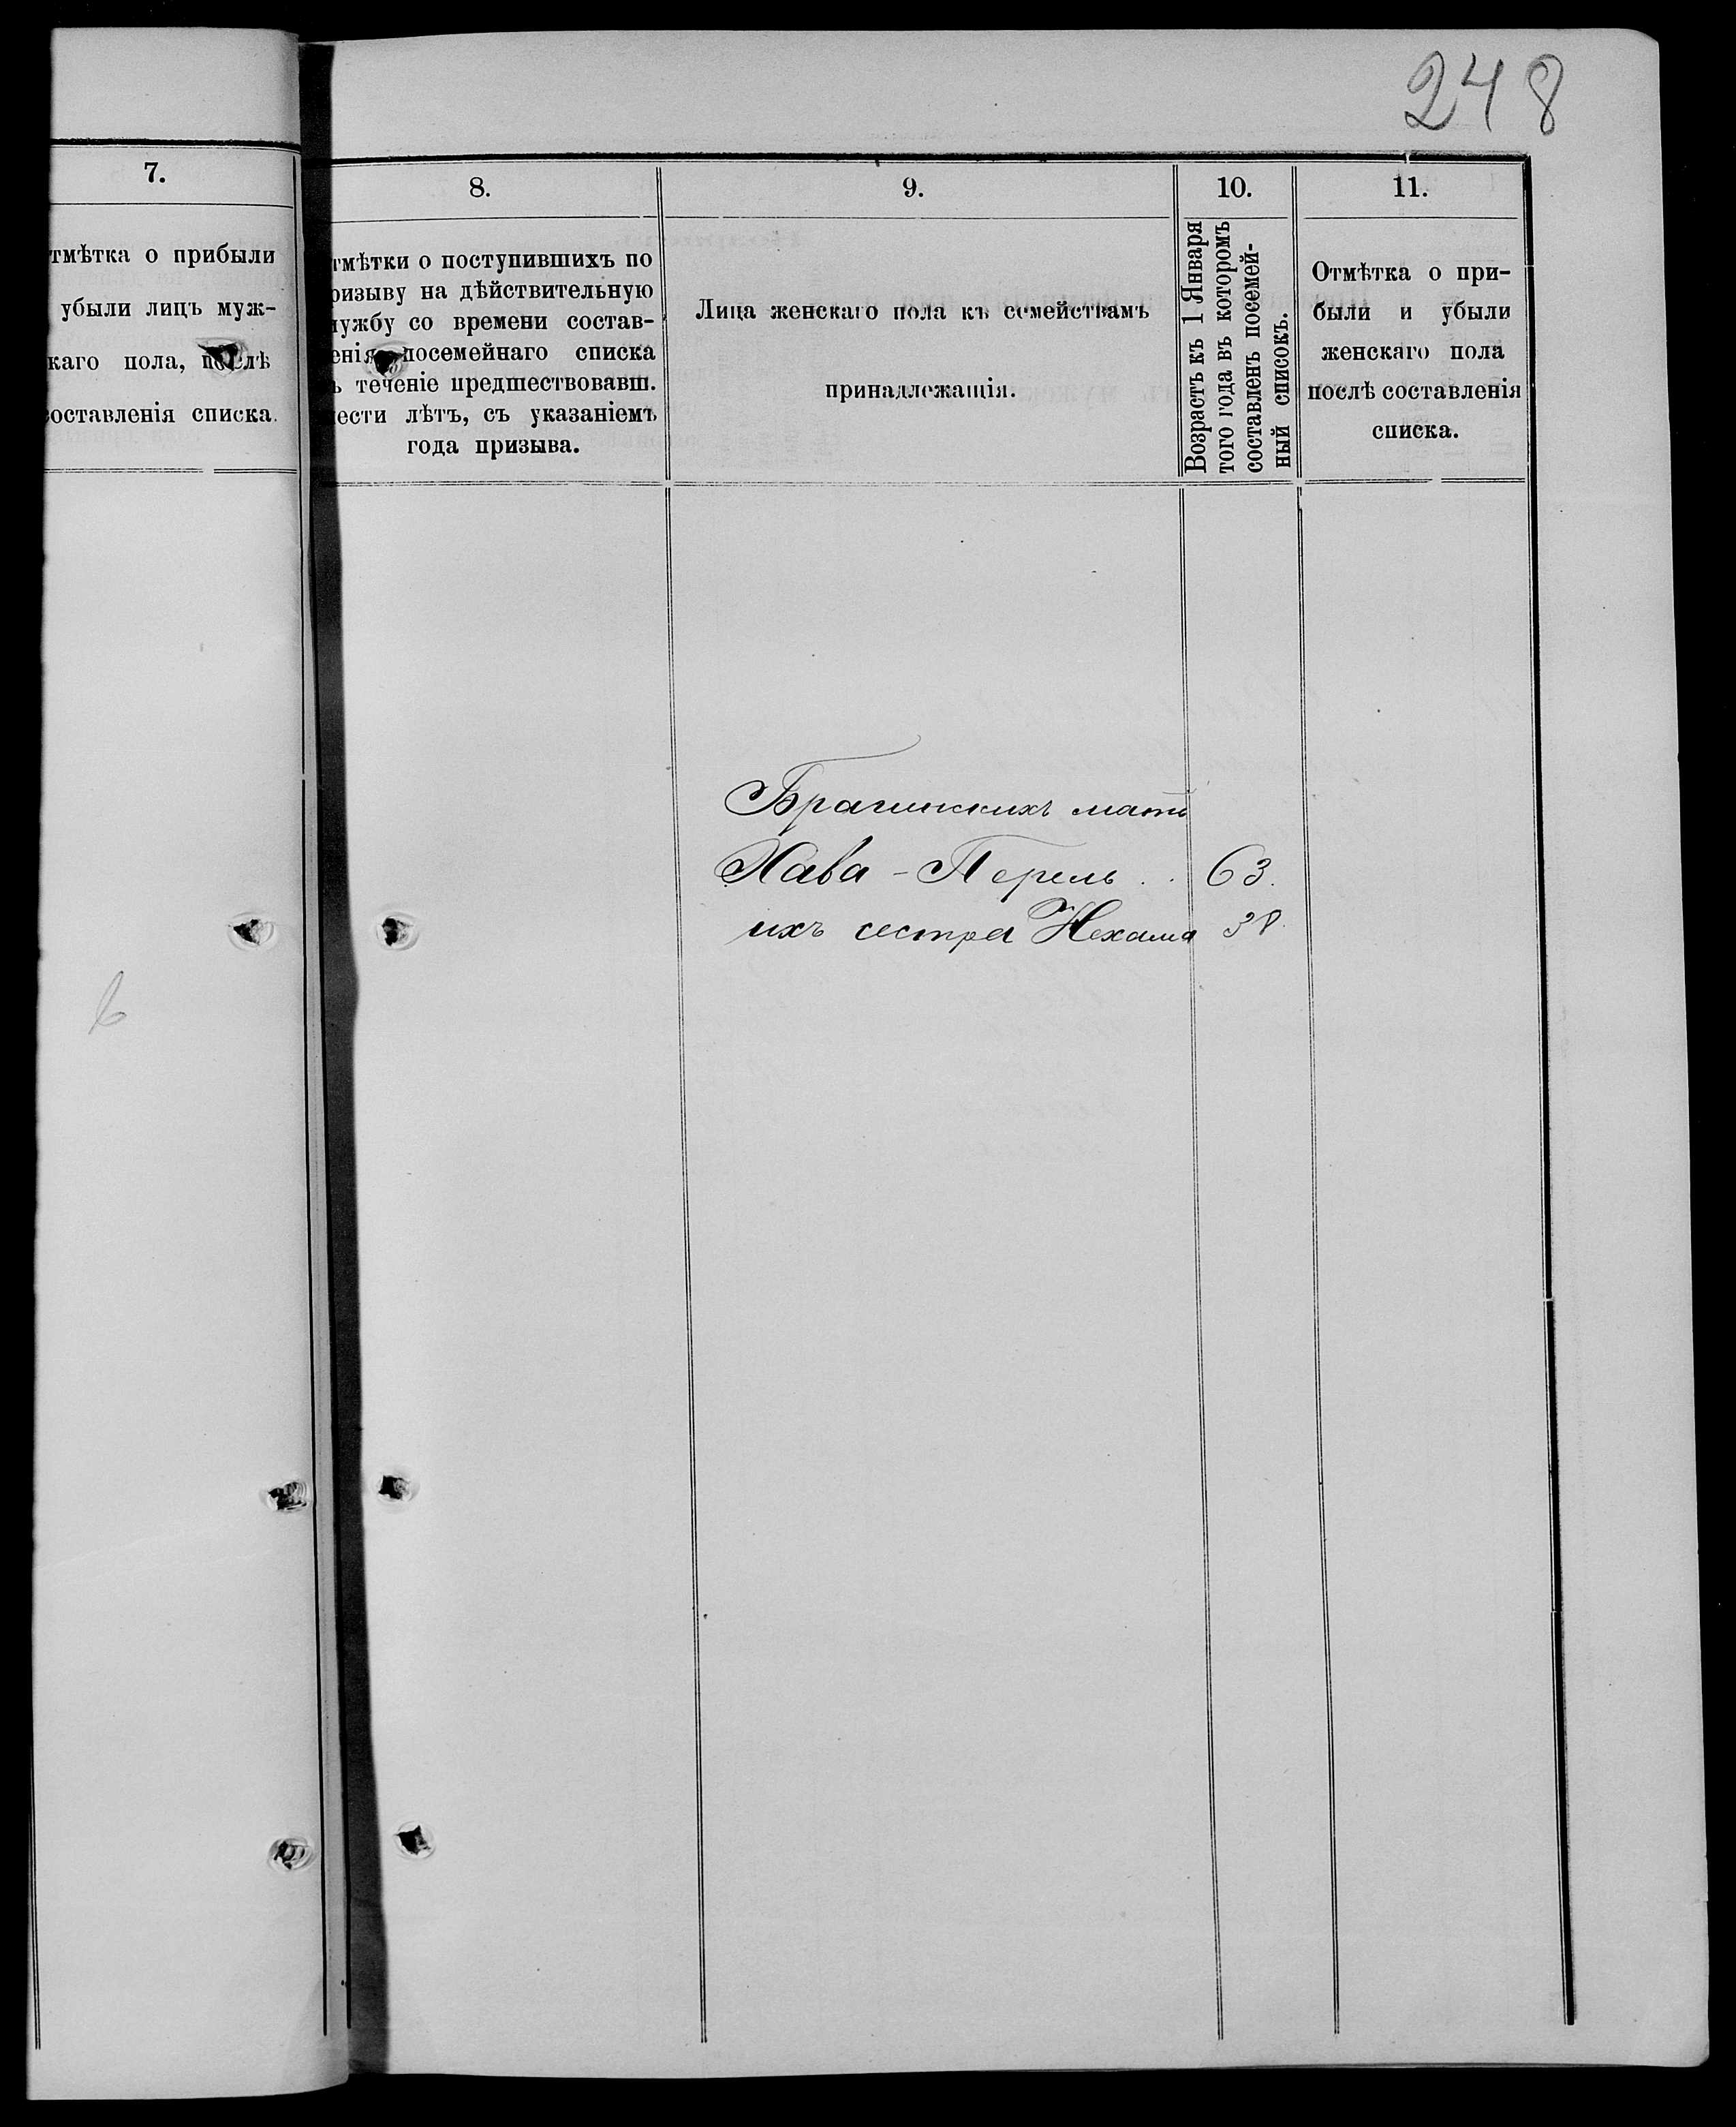 248
7.
тмѣтка о прибыли
убыли лицъ муж-
каго пола, послѣ
оставленія списка.
в
8.
тмѣтки о поступившихъ по
ризыву на дѣйствительную
ужбу со времени состав-
енія посемейнаго списка
ъ теченіе предшествовавш.
ести лѣтъ, съ указаніемъ
года призыва.
9.
Лица женскаго пола къ семействамъ
принадлежащія.
10.
Возрастъ къ 1 Января
того года въ которомъ
составленъ посемей-
ный списокъ.
11.
Отмѣтка о при-
были и убыли
женскаго пола
послѣ составленія
списка.
Брагинскихъ мать
Хава - Перель . . 63.
ихъ сестра Нехама 38.